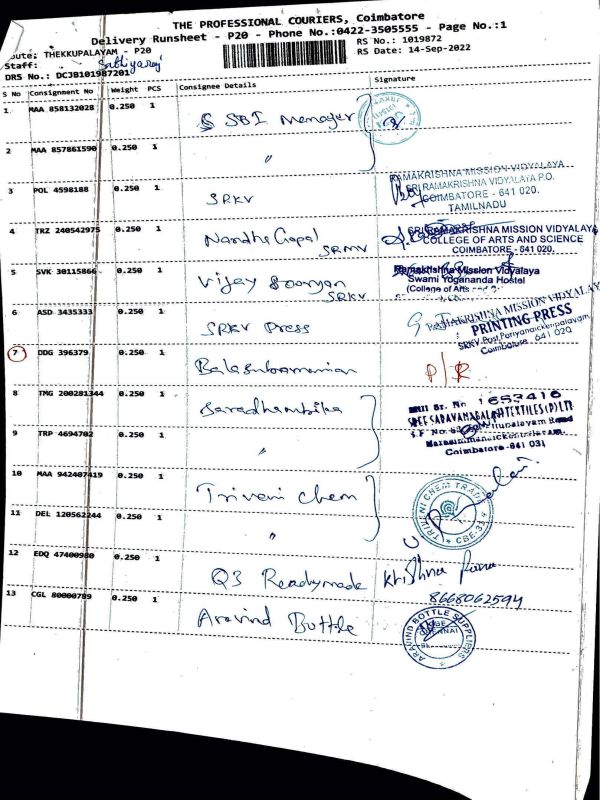 THE PROFESSIONAL COURIERS, Coimbatore
Delivery Runsheet - P20 - Phone No.:0422-3505555 - Page No.:1
oute: THEKKUPALAYAM - P20
RS No.: 1019872
Staff: Sathiyaraj
RS Date: 14-Sep-2022
DRS No.: DCJB101987201
S No Consignment No Weight PCS Consignee Details Signature
1. MAA 858132028 0.250 1 SBI Manager
2 MAA 857861590 0.250 1 "
3 POL 4598188 0.250 1 SRKV
RAMAKRISHNA MISSION VIDYALAYA
SRI RAMAKRISHNA VIDYALAYA P.O.
COIMBATORE - 641 020.
TAMILNADU
4 TRZ 240542975 0.250 1 Nandha Gopal SRMV
SRI RAMAKRISHNA MISSION VIDYALAYA
COLLEGE OF ARTS AND SCIENCE
COIMBATORE - 641 020.
5 SVK 30115866 0.250 1 Vijay SRKV
Ramakrishna Mission Vidyalaya
Swami Yogananda Hostel
(College of Arts and
6 ASD 3435333 0.250 1 SRKV Press
RAMAKRISHNA MISSION VIDYALAYA
PRINTING PRESS
SRKV Post, Periyanaickenpalayam
Coimbatore 641 020
7 DDG 396379 0.250 1 Balasubramanian P/R
8 TMG 200281344 0.250 1 Saradhambika
1653416
SREE SARADHAMBALAH TEXTILES (P) LTD
9 TRP 4694702 0.250 1 "
Coimbatore-641 031
10 MAA 942407419 0.250 1 Triveni Chem
TRIVENI CHEM TRADE
11 DEL 120562244 0.250 1 "
12 EDQ 47400980 0.250 1 Q3 Readymade Krishna
8668062594
13 CGL 80000789 0.250 1 Aravind Bottle
ARAVIND BOTTLE SUPPLIERS